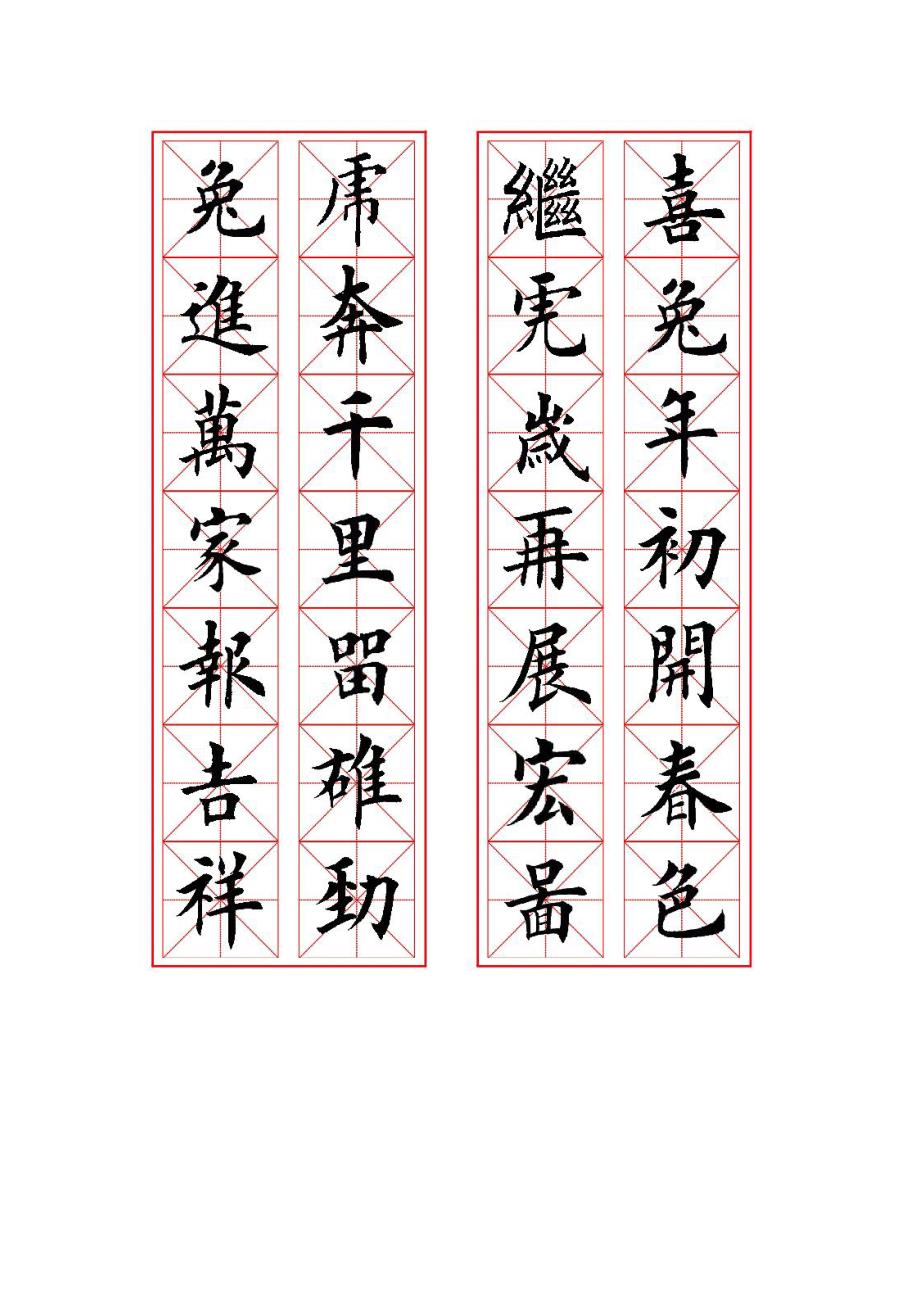 喜兔年初開春色
繼虎歲再展宏啚
虎奔千里留雄勁
兔進萬家報吉祥